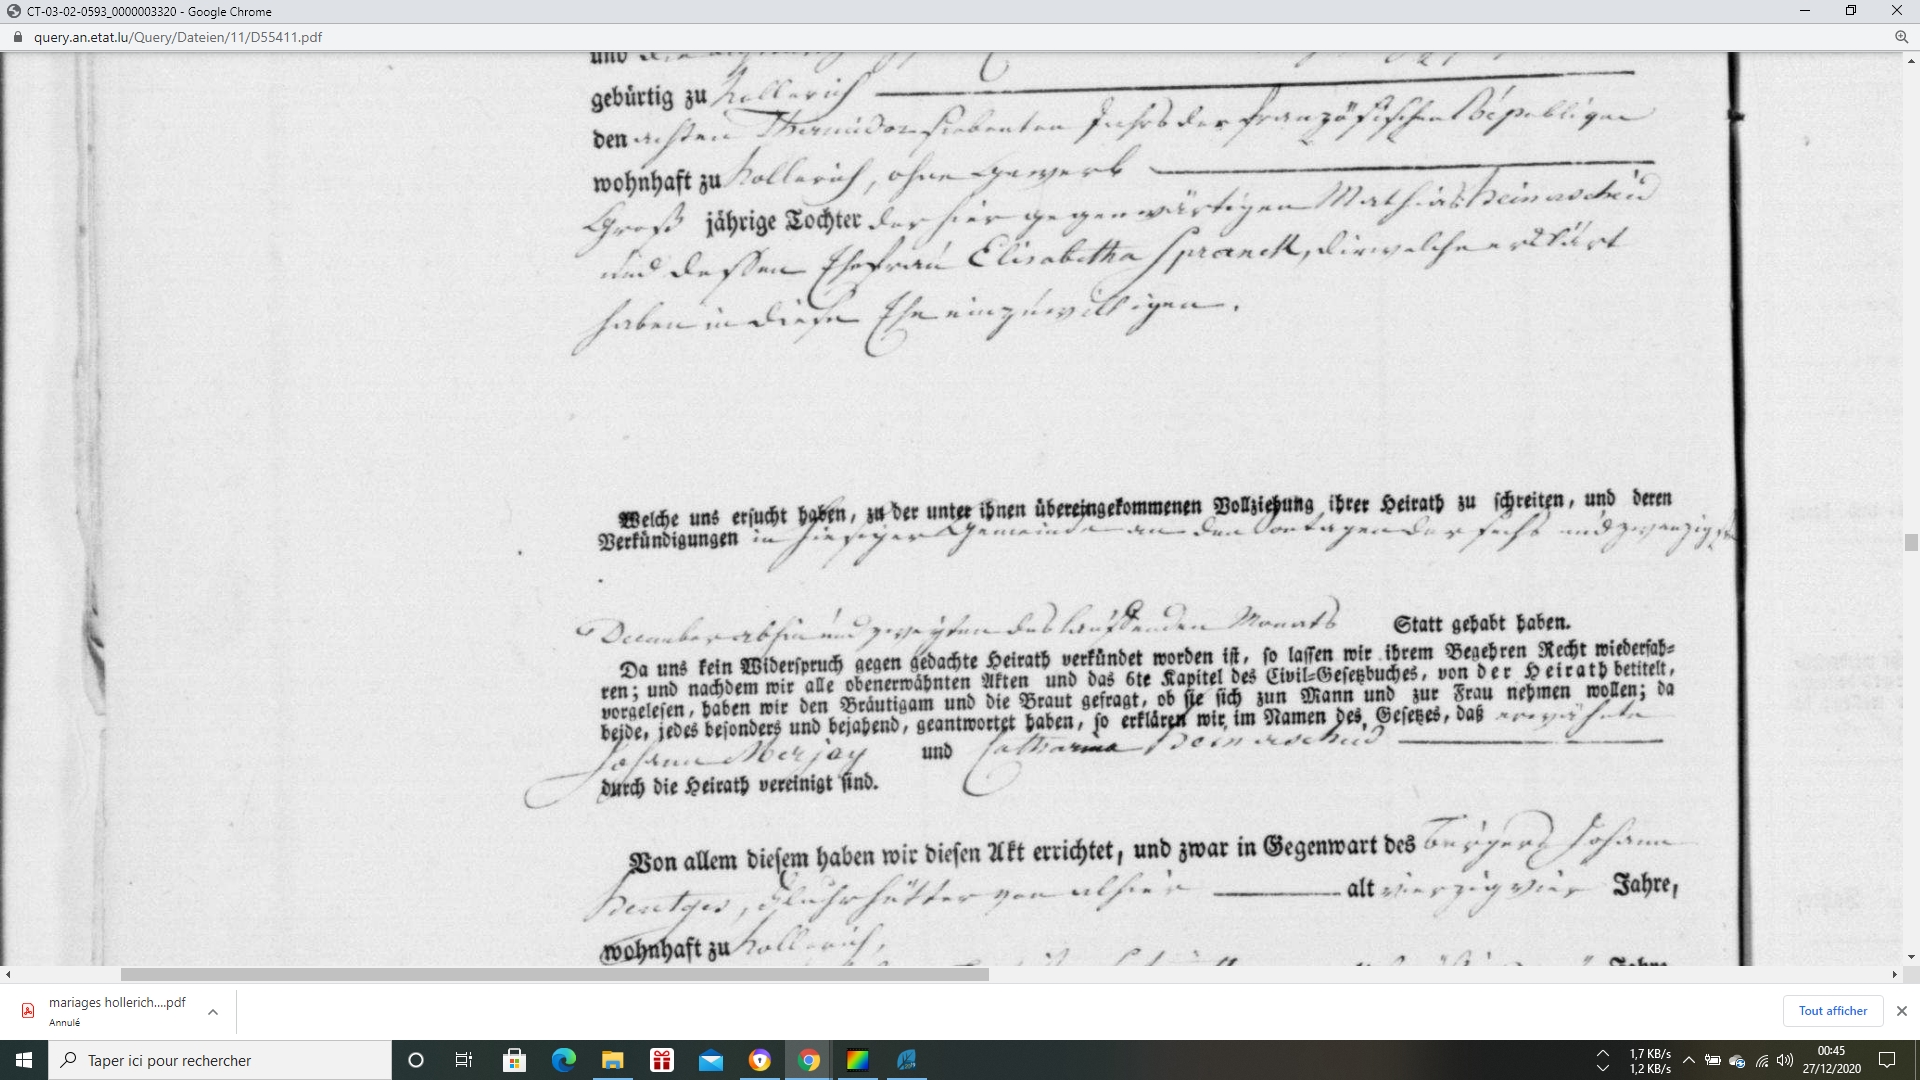 CT-03-02-0593_0000003320 - Google Chrome
query.an.etat.lu/Query/Dateien/11/D55411.pdf
und
gebürtig zu Hollerich
den achten Thermidor siebenten Jahrs der französischen Républiqu
wohnhaft zu Hollerich, ohne Gewerb
Groß jährige Tochter der hier gegenwärtigen Mathias Heinerscheid
und dessen Ehefrau Elisabetha Spranck, die welche erklärt
haben in diese Ehe einzuwilligen.
Welche uns ersucht haben, zu der unter ihnen übereingekommenen Vollziehung ihrer Heirath zu schreiten, und deren
Verkündigungen in hiesiger Gemeinde an den Sontagen der sechs und zwanzigste
December abhin und zweyten des laufenden Monats Statt gehabt haben.
Da uns kein Widerspruch gegen gedachte Heirath verkündet worden ist, so lassen wir ihrem Begehren Recht wiederfah=
ren; und nachdem wir alle obenerwähnten Akten und das 6te Kapitel des Civil=Gesetzbuches, von der Heirath betitelt,
vorgelesen, haben wir den Bräutigam und die Braut gefragt, ob sie sich zun Mann und zur Frau nehmen wollen; da
beide, jedes besonders und bejahend, geantwortet haben, so erklären wir im Namen des Gesetzes, daß erwähnte
Johann Merjay und Catharina Heinerscheid
durch die Heirath vereinigt sind.
Von allem diesem haben wir diesen Akt errichtet, und zwar in Gegenwart des Bürgers Johann
Hentges, von alhier alt vierzig vier Jahre,
wohnhaft zu Hollerich,
Jahre
mariages hollerich....pdf
Annulé
Tout afficher
Taper ici pour rechercher
1,7 KB/s
1,2 KB/s
00:45
27/12/2020